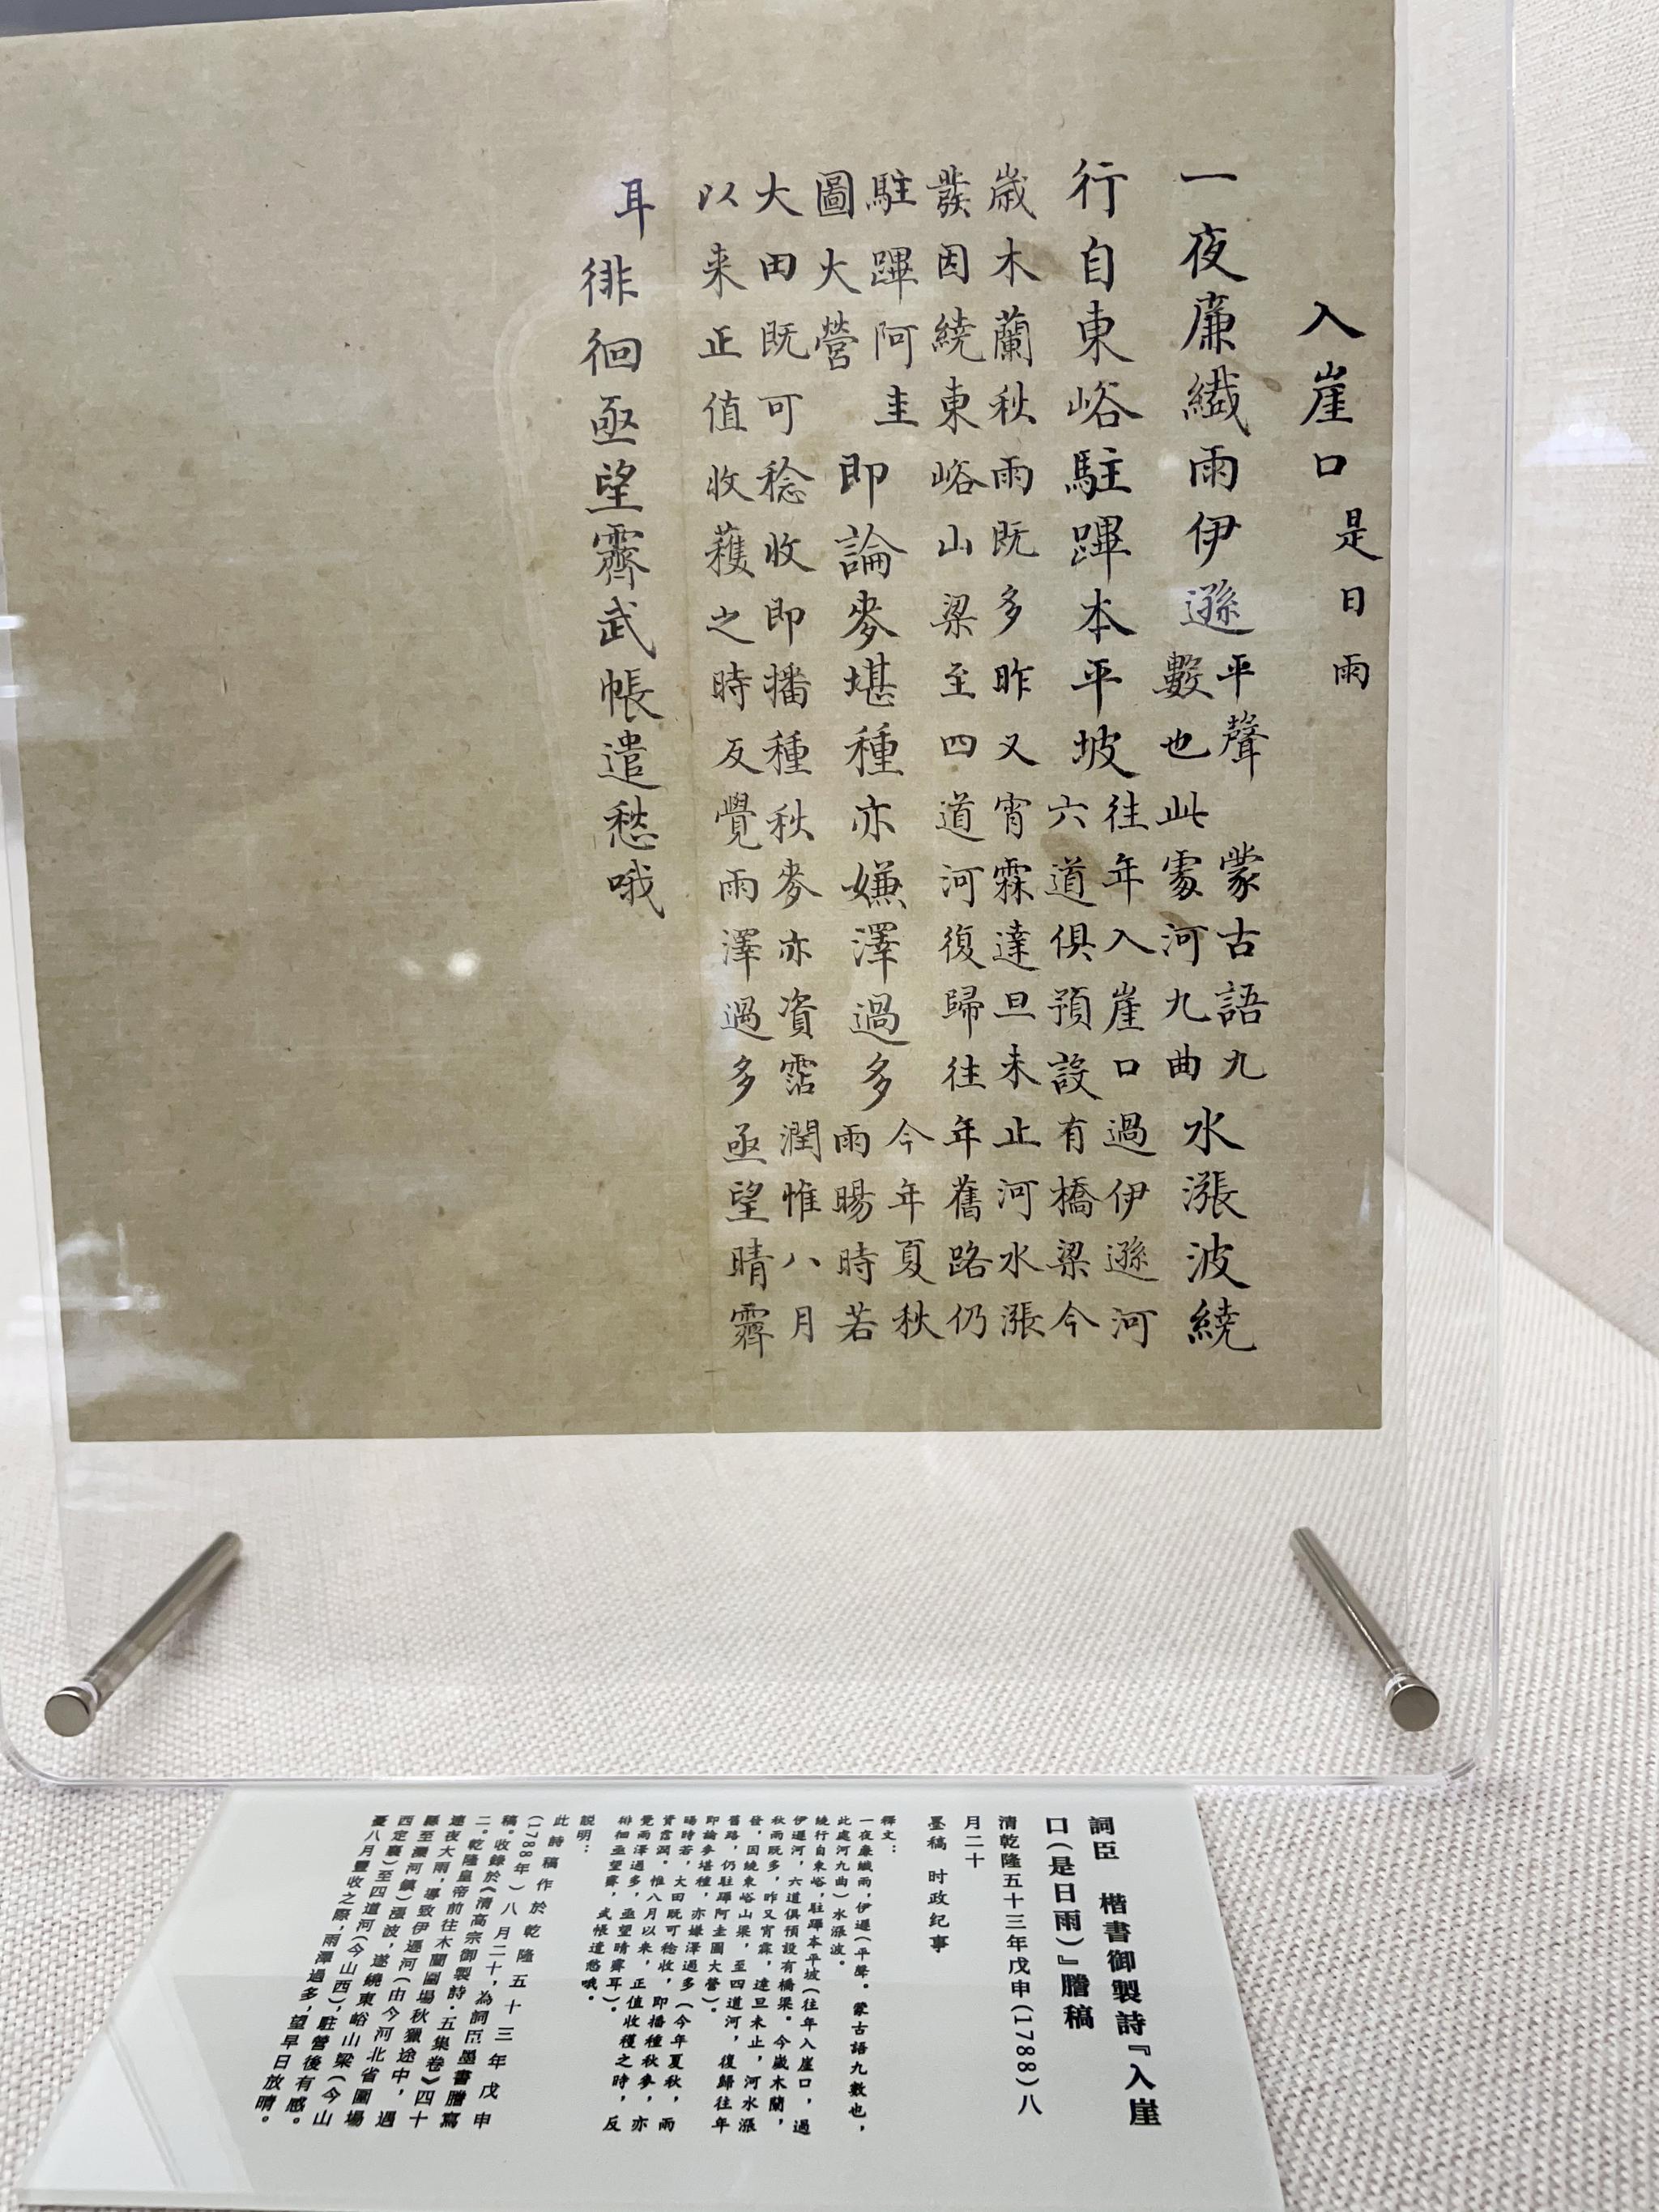 入崖口是日雨
一夜廉纖雨伊遜平聲 蒙古語九
數也此處河九曲水漲波繞
行自東峪駐蹕本平坡往年入崖口過伊遜河
六道俱預設有橋梁今
歲木蘭秋雨既多昨又宵霖達旦未止河水漲
發因繞東峪山梁至四道河復歸往年舊路仍
駐蹕阿圭
圖大營即論麥堪種亦嫌澤過多今年夏秋
雨暘時若
大田既可稔收即播種秋麥亦資霑潤惟八月
以来正值收穫之時反覺雨澤過多亟望晴霽
耳徘徊亟望霽武帳遣愁哦
詞臣 楷書御製詩『入崖
口(是日雨)』謄稿
清乾隆五十三年戊申(1788)八
月二十
墨稿 时政纪事
釋文:
一夜廉纖雨,伊遜(平聲。蒙古語九數也,
此處河九曲)水漲波。
繞行自東峪,駐蹕本平坡(往年入崖口,過
伊遜河,六道俱預設有橋梁。今歲木蘭,
秋雨既多,昨又宵霖,達旦未止,河水漲
發,因繞東峪山梁,至四道河,復歸往年
舊路,仍駐蹕阿圭圖大營)。
即論麥堪種,亦嫌澤過多(今年夏秋,雨
暘時若,大田既可稔收,即播種秋麥,亦
資霑潤。惟八月以来,正值收穫之時,反
覺雨澤過多,亟望晴霽耳)。
徘徊亟望霽,武帳遣愁哦。
説明:
此詩稿作於乾隆五十三年戊申
(1788年)八月二十,為詞臣墨書謄寫
稿。收錄於《清高宗御製詩·五集卷》四十
二。乾隆皇帝前往木蘭圍場秋獵途中,遇
連夜大雨,導致伊遜河(由今河北省圍場
縣至灤河鎮)漲波,遂繞東峪山梁(今山
西定襄)至四道河(今山西),駐營後有感。
憂八月豐收之際,雨澤過多,望早日放晴。